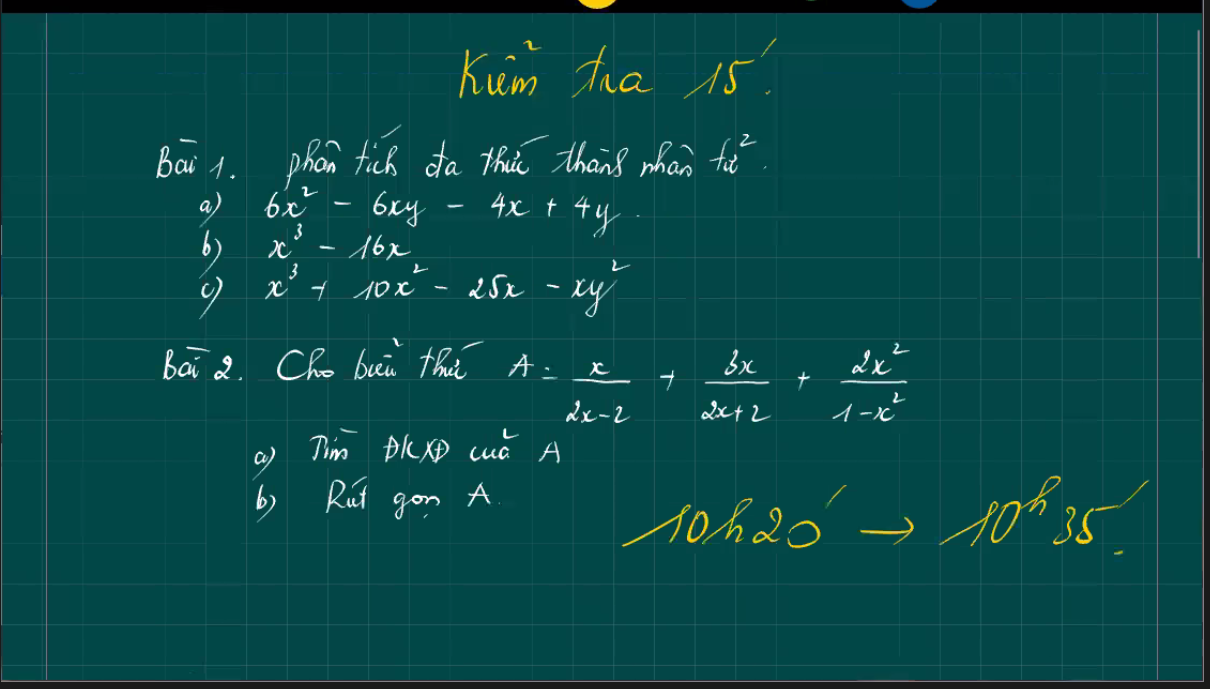 Kiểm tra 15'.
Bài 1. phân tích đa thức thành nhân tử.
a) 6x² - 6xy - 4x + 4y.
b) x³ - 16x
c) x³ + 10x² - 25x - xy²
Bài 2. Cho biểu thức A = x/(2x-2) + 3x/(2x+2) + 2x²/(1-x²)
a) Tìm ĐKXĐ của A
b) Rút gọn A.
10h20' → 10h35'.